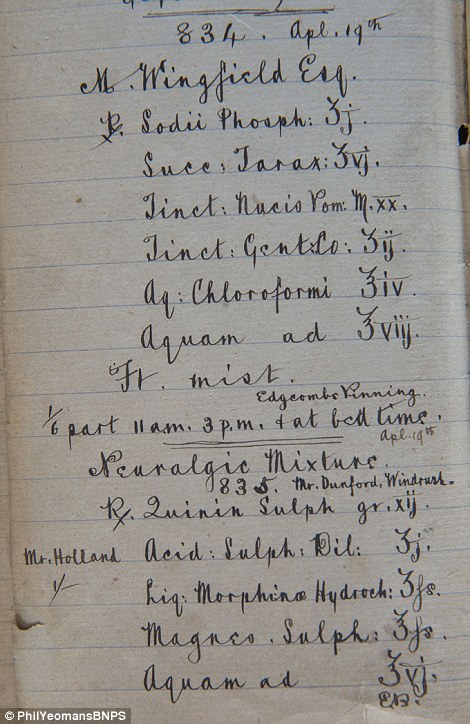 834. Apl. 19th
M. Wingfield Esq.
℞. Sodii Phosph: ʒj.
Succ: Tarax: ʒvj.
Tinct: Nucis Vom: M.xx.
Tinct: Gent:Co: ʒij.
Aq: Chloroformi ℥iv.
Aquam ad ℥viij.
Ft. mist.
Edgcombe Venning.
1/6 part 11 am. 3 p.m. & at bed time.
Apl. 19th
Neuralgic Mixture.
835. Mr. Dunford, Windrush.
℞. Quinin Sulph gr. xij.
Mr. Holland Acid: Sulph: Dil: ʒj.
1/- Liq: Morphinæ Hydroch: ʒss.
Magnes. Sulph: ℥ss.
Aquam ad ℥vj.
© PhilYeomansBNPS